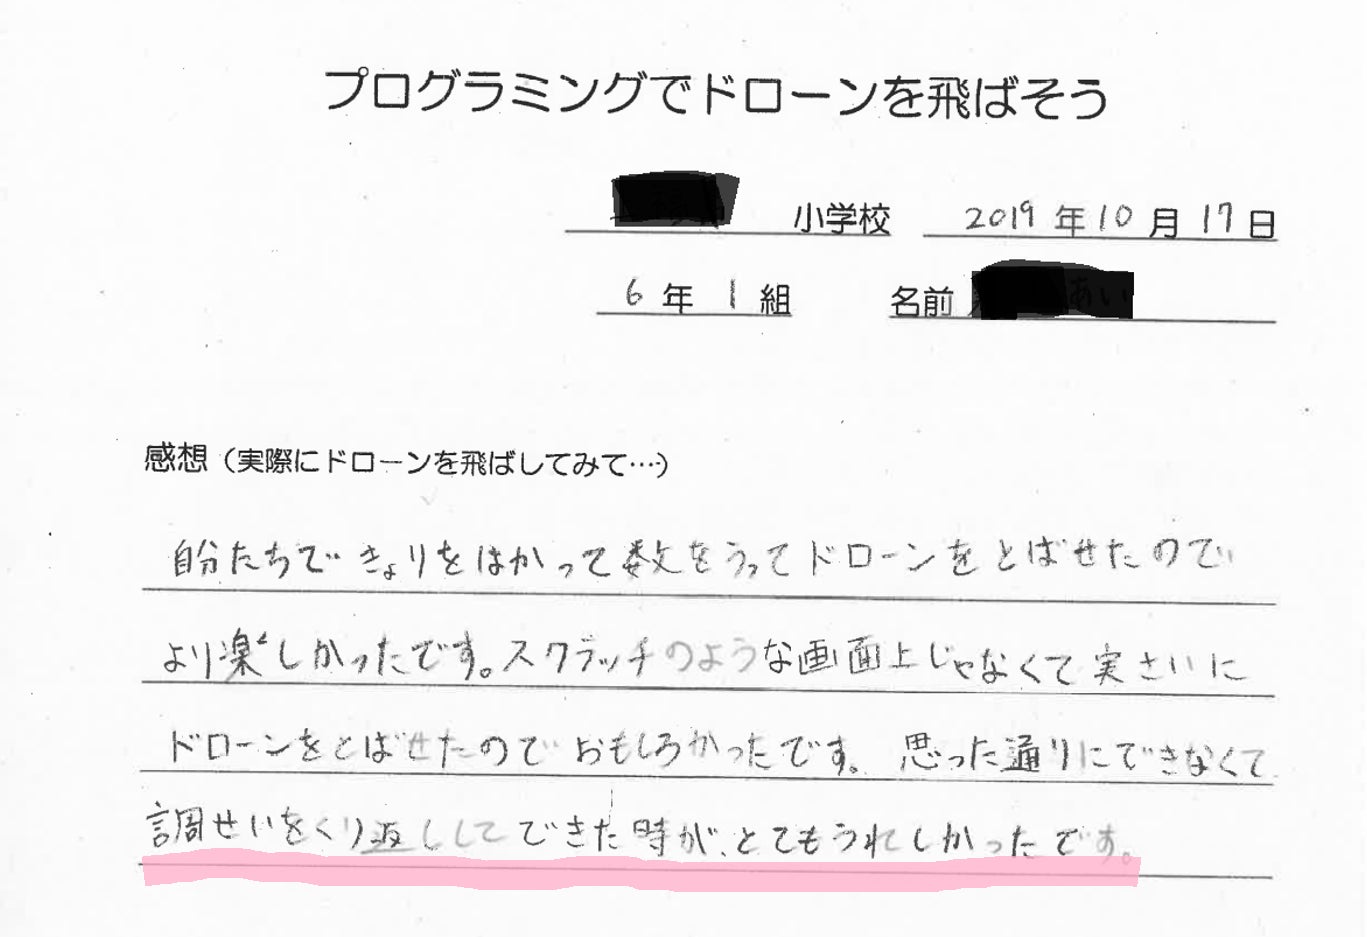 プログラミングでドローンを飛ばそう
小学校 2019年10月17日
6年1組 名前
感想（実際にドローンを飛ばしてみて…）
自分たちできょりをはかって数をうってドローンをとばせたので
より楽しかったです。スクラッチのような画面上じゃなくて実さいに
ドローンをとばせたのでおもしろかったです。思った通りにできなくて
調せいをくり返ししてできた時が、とてもうれしかったです。